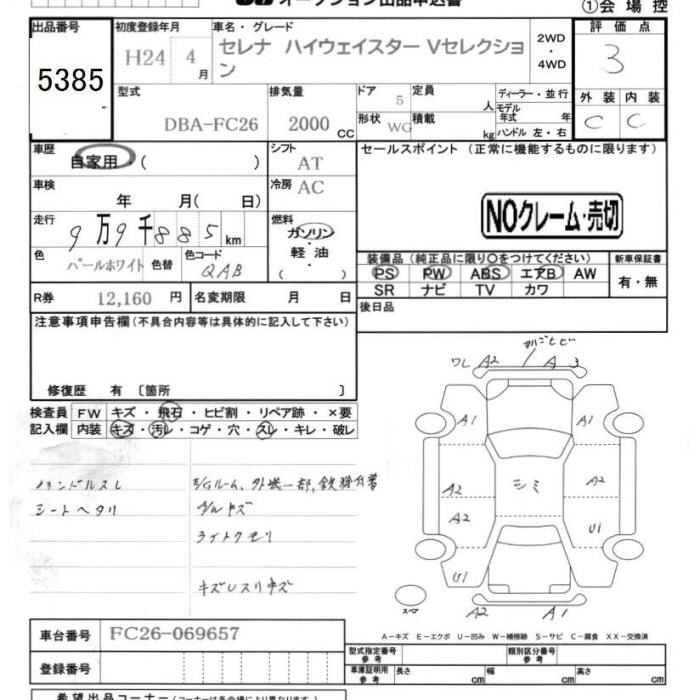 オークション出品申込書
①会場控
出品番号
5385
初度登録年月
H24 4月
車名・グレード
セレナ ハイウェイスター Vセレクション
2WD
・
4WD
評価点
3
型式
DBA-FC26
排気量
2000 CC
ドア 5
形状 WG
定員 人
積載 kg
ディーラー・並行
モデル年式 年
ハンドル 左・右
外装 内装
C C
車歴
自家用・( )
シフト AT
車検
年 月( 日)
冷房 AC
走行
9万9千885km
燃料
ガソリン
軽油
( )
色
パールホワイト
色替
色コード
QAB
R券 12,160円
名変期限 月 日
セールスポイント (正常に機能するものに限ります)
NOクレーム・売切
装備品 (純正品に限り○をつけてください)
PS PW ABS エアB AW
SR ナビ TV カワ
新車保証書
有・無
後日品
注意事項申告欄(不具合内容等は具体的に記入して下さい)
修復歴 有 〔箇所 〕
検査員記入欄
FW キズ・飛石・ヒビ割・リペア跡・×要
内装 キズ・汚レ・コゲ・穴・スレ・キレ・破レ
ハンドルスレ
シートヘタリ
E/Gルーム、外板一部、鉄粉付着
ライトクモリ
ワレ A2 A 3
A1 A1
A2 A2
A2 シミ U1
U1
A2 A1
A-キズ E-エクボ U-凹み W-補修跡 S-サビ C-腐食 XX-交換済
車台番号 FC26-069657
登録番号
型式指定番号 参考
類別区分番号 参考
車庫証明用 参考 長さ cm 幅 cm 高さ cm
希望出品コーナー